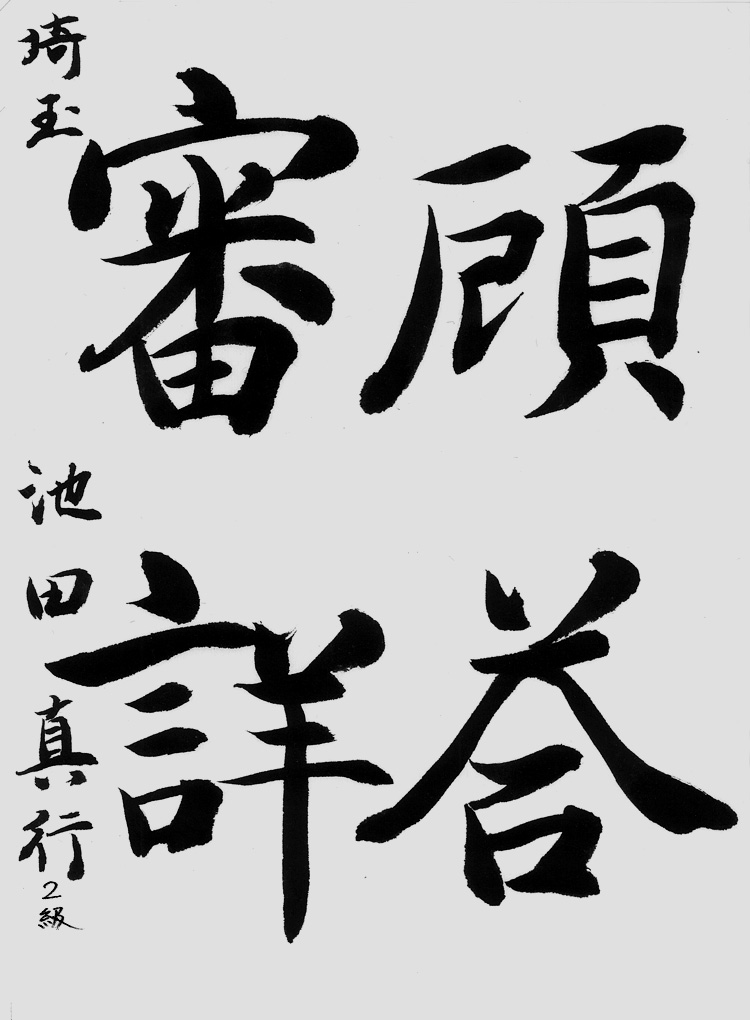 頋荅
審詳
埼玉 池田真行 2級